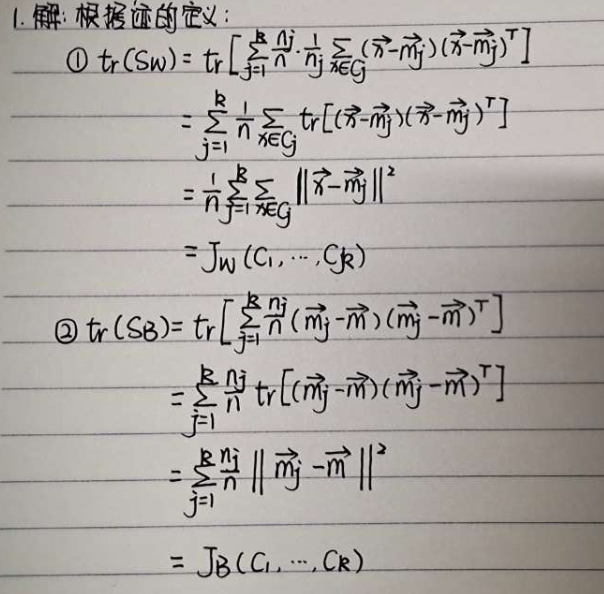 1. 解: 根据迹的定义:
① tr(S_W) = tr[∑_{j=1}^{k} n_j/n · 1/n_j ∑_{x∈C_j} (x⃗-m⃗_j)(x⃗-m⃗_j)^T]
= ∑_{j=1}^{k} 1/n ∑_{x∈C_j} tr[(x⃗-m⃗_j)(x⃗-m⃗_j)^T]
= 1/n ∑_{j=1}^{k} ∑_{x∈C_j} ||x⃗-m⃗_j||^2
= J_W(C_1, ..., C_k)
② tr(S_B) = tr[∑_{j=1}^{k} n_j/n (m⃗_j-m⃗)(m⃗_j-m⃗)^T]
= ∑_{j=1}^{k} n_j/n tr[(m⃗_j-m⃗)(m⃗_j-m⃗)^T]
= ∑_{j=1}^{k} n_j/n ||m⃗_j-m⃗||^2
= J_B(C_1, ..., C_k)